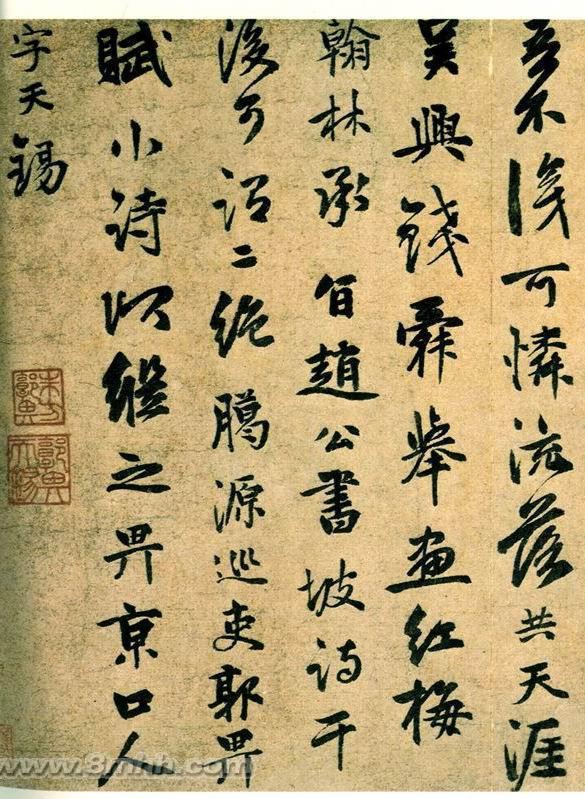 不可憐流落共天涯
吳興錢舜舉畫紅梅
翰林承旨趙公書坡詩于
後可謂二絕臈源巡吏郭畀
賦小詩以繼之畀京口人
字天錫
www.8mhh.com